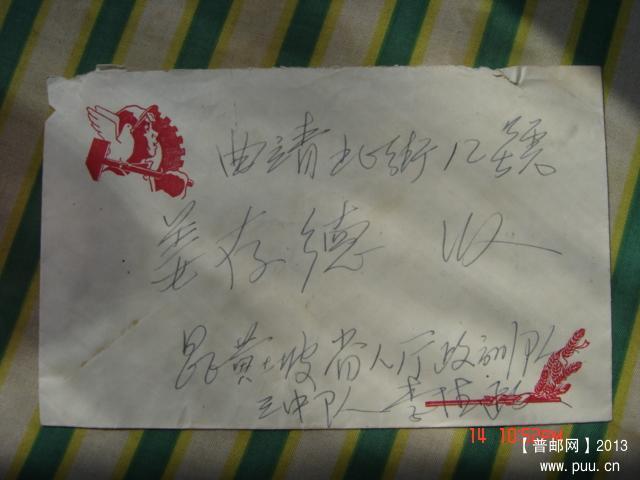 曲靖北街12號
姜存德 收
昆黄土坡省人厅政训队
三中队 李
14 10:52PM
【普邮网】2013
www.puu.cn